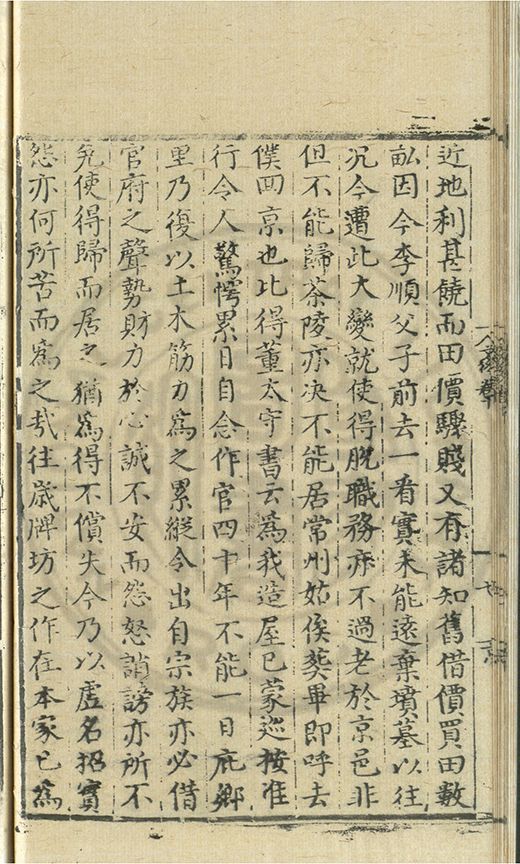 近地利甚饒而田價驟賤又有諸知舊借價買田數
畝因令李順父子前去一看實未能遠棄墳墓以往
況今遭此大變就使得脫職務亦不過老於京邑非
但不能歸茶陵亦决不能居常州姑俟葬畢即呼去
僕囬京也比得董太守書云爲我造屋已蒙巡按准
行令人驚愕累日自念作官四十年不能一日庇鄉
里乃復以土木筋力爲之累縱令出自宗族亦必借
官府之聲勢財力於心誠不安而怨怒誚謗亦所不
免使得歸而居之猶爲得不償失今乃以虛名招實
怨亦何所苦而爲之㢤往歲牌坊之作在本家已爲